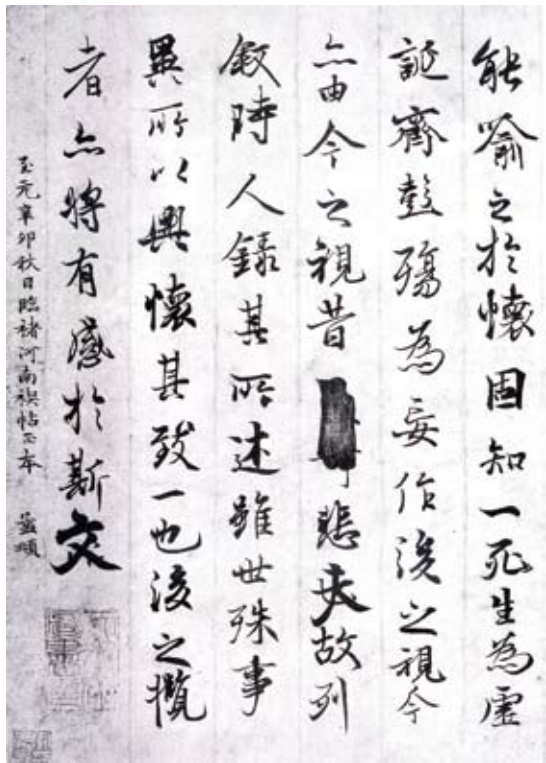 能喻之於懷固知一死生為虛
誕齊彭殤為妄作後之視今
亦由今之視昔悲夫故列
叙時人錄其所述雖世殊事
異所以興懷其致一也後之攬
者亦將有感於斯文
至元辛卯秋日臨褚河南禊帖正本 孟頫